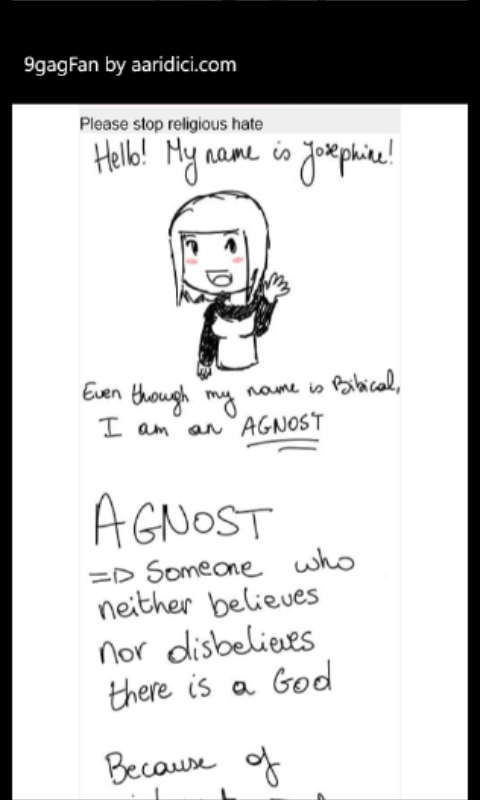 9gagFan by aaridici.com
Please stop religious hate
Hello! My name is Josephine!
Even though my name is Bibical,
I am an AGNOST
AGNOST
=> Someone who
neither believes
nor disbelieves
there is a God
Because of